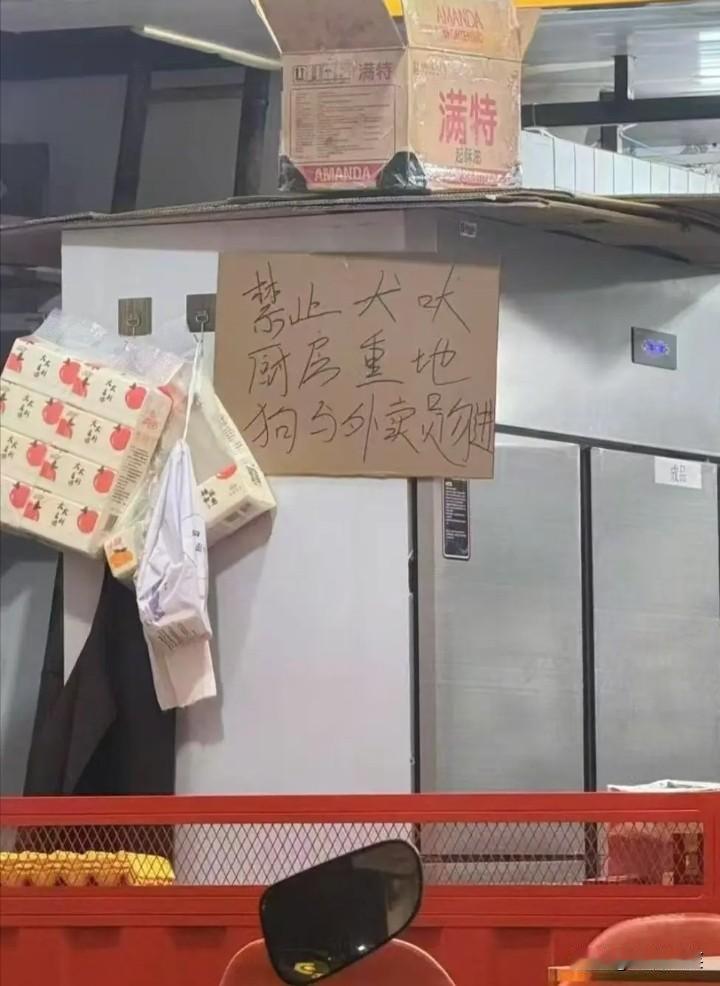 AMANDA
满特
满特
起酥油
AMANDA
禁止犬吠
厨房重地
狗与外卖员勿进
成品